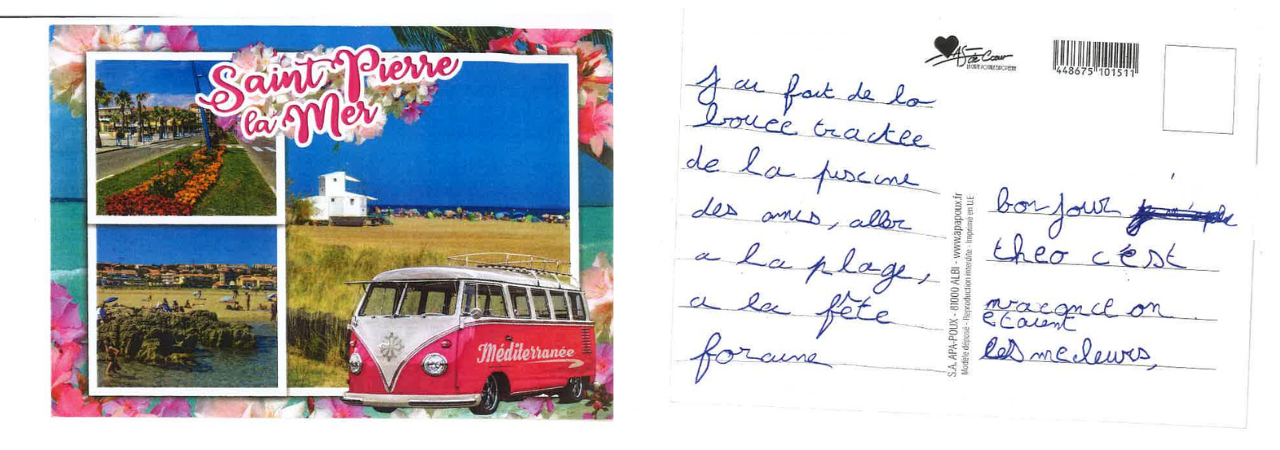 Saint Pierre
la Mer
Méditerranée
As de Cœur
448675 101511
J'ai fait de la
bouée tractée
de la piscine
des amis, aller
a la plage,
a la fête
foraine
S.A. APA-POUX - 81000 ALBI - www.apapoux.fr
Modèle déposé - Reproduction interdite - Imprimé en U.E
bonjour
theo c'est
on
étaient
les meileurs,